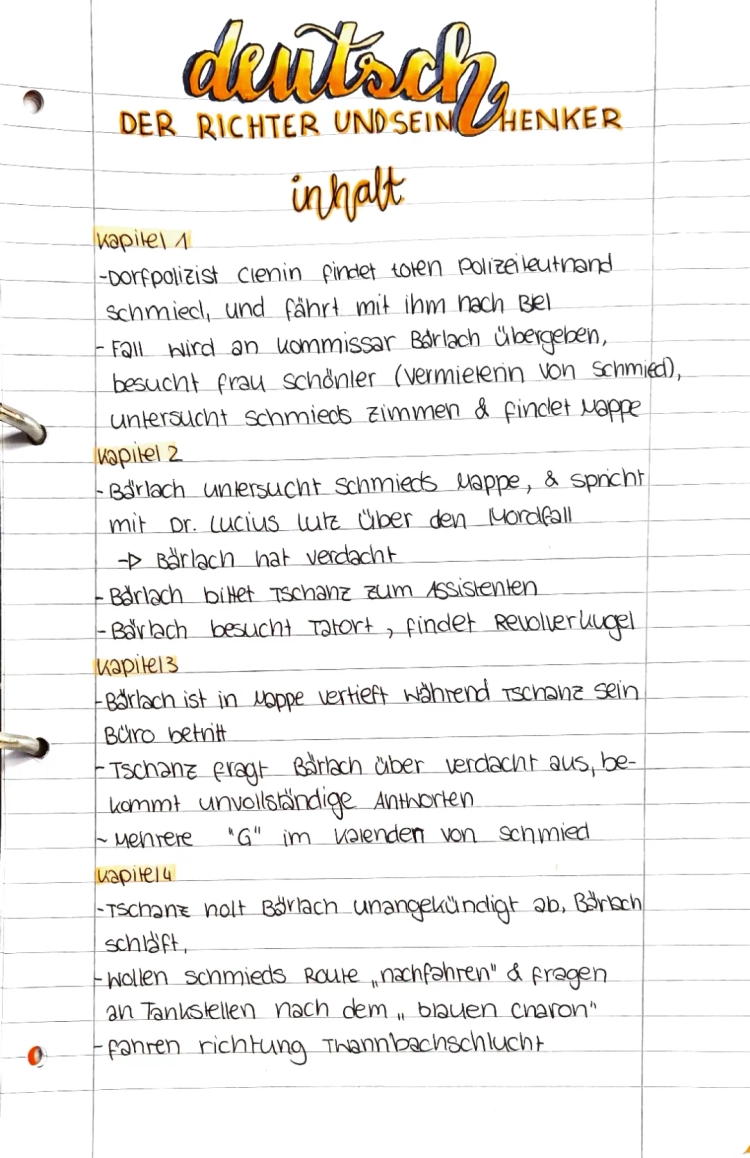 deutsch
DER RICHTER UND SEIN HENKER
inhalt
Kapitel 1
-Dorfpolizist Clenin findet toten Polizeileutnand
schmied, und fährt mit ihm nach Biel
- Fall wird an Kommissar Bärlach übergeben,
besucht frau schönler (vermieterin von Schmied),
untersucht schmieds zimmen & findet Mappe
Kapitel 2
- Bärlach untersucht schmieds Mappe, & spricht
mit Dr. Lucius Lutz über den Mordfall
→ Bärlach hat verdacht
- Bärlach bittet Tschanz zum Assistenten
- Bärlach besucht Tatort, findet Revolverkugel
Kapitel 3
- Bärlach ist in Mappe vertieft während Tschanz sein
Büro betritt
- Tschanz fragt Bärlach über verdacht aus, be-
kommt unvollständige Antworten
- Mehrere "G" im Kalenden von schmied
Kapitel 4
-Tschanz holt Bärlach unangekündigt ab, Bärlach
schläft,
- Wollen schmieds Route „nachfahren" & fragen
an Tankstellen nach dem „blauen charon"
- fahren richtung Twannbachschlucht